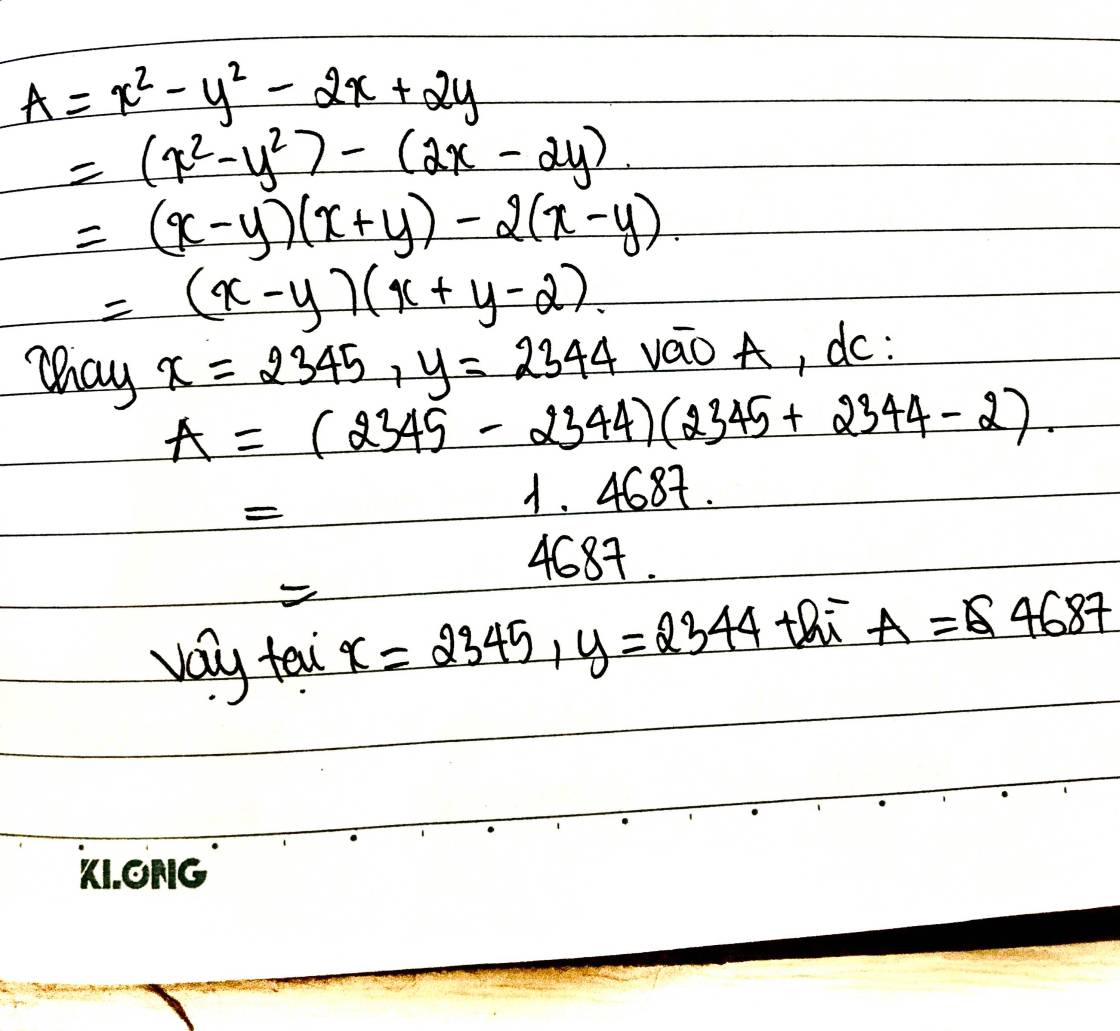 A = x² - y² - 2x + 2y
= (x² - y²) - (2x - 2y).
= (x - y)(x + y) - 2(x - y).
= (x - y)(x + y - 2).
Thay x = 2345, y = 2344 vào A, dc:
A = (2345 - 2344)(2345 + 2344 - 2).
= 1. 4687.
= 4687.
Vậy tại x = 2345, y = 2344 thì A = 4687
KLONG